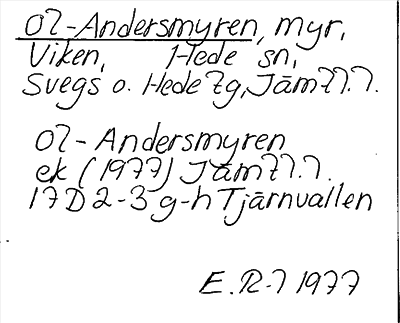 Ol-Andersmyren, myr,
Viken, Hede sn,
Svegs o. Hede tg, Jämtl.l.
Ol-Andersmyren
ek (1977) Jämtl.l.
17D 2-3 g-h Tjärnvallen
E.R-l 1977